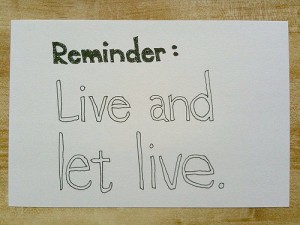 Reminder:
Live and
let live.